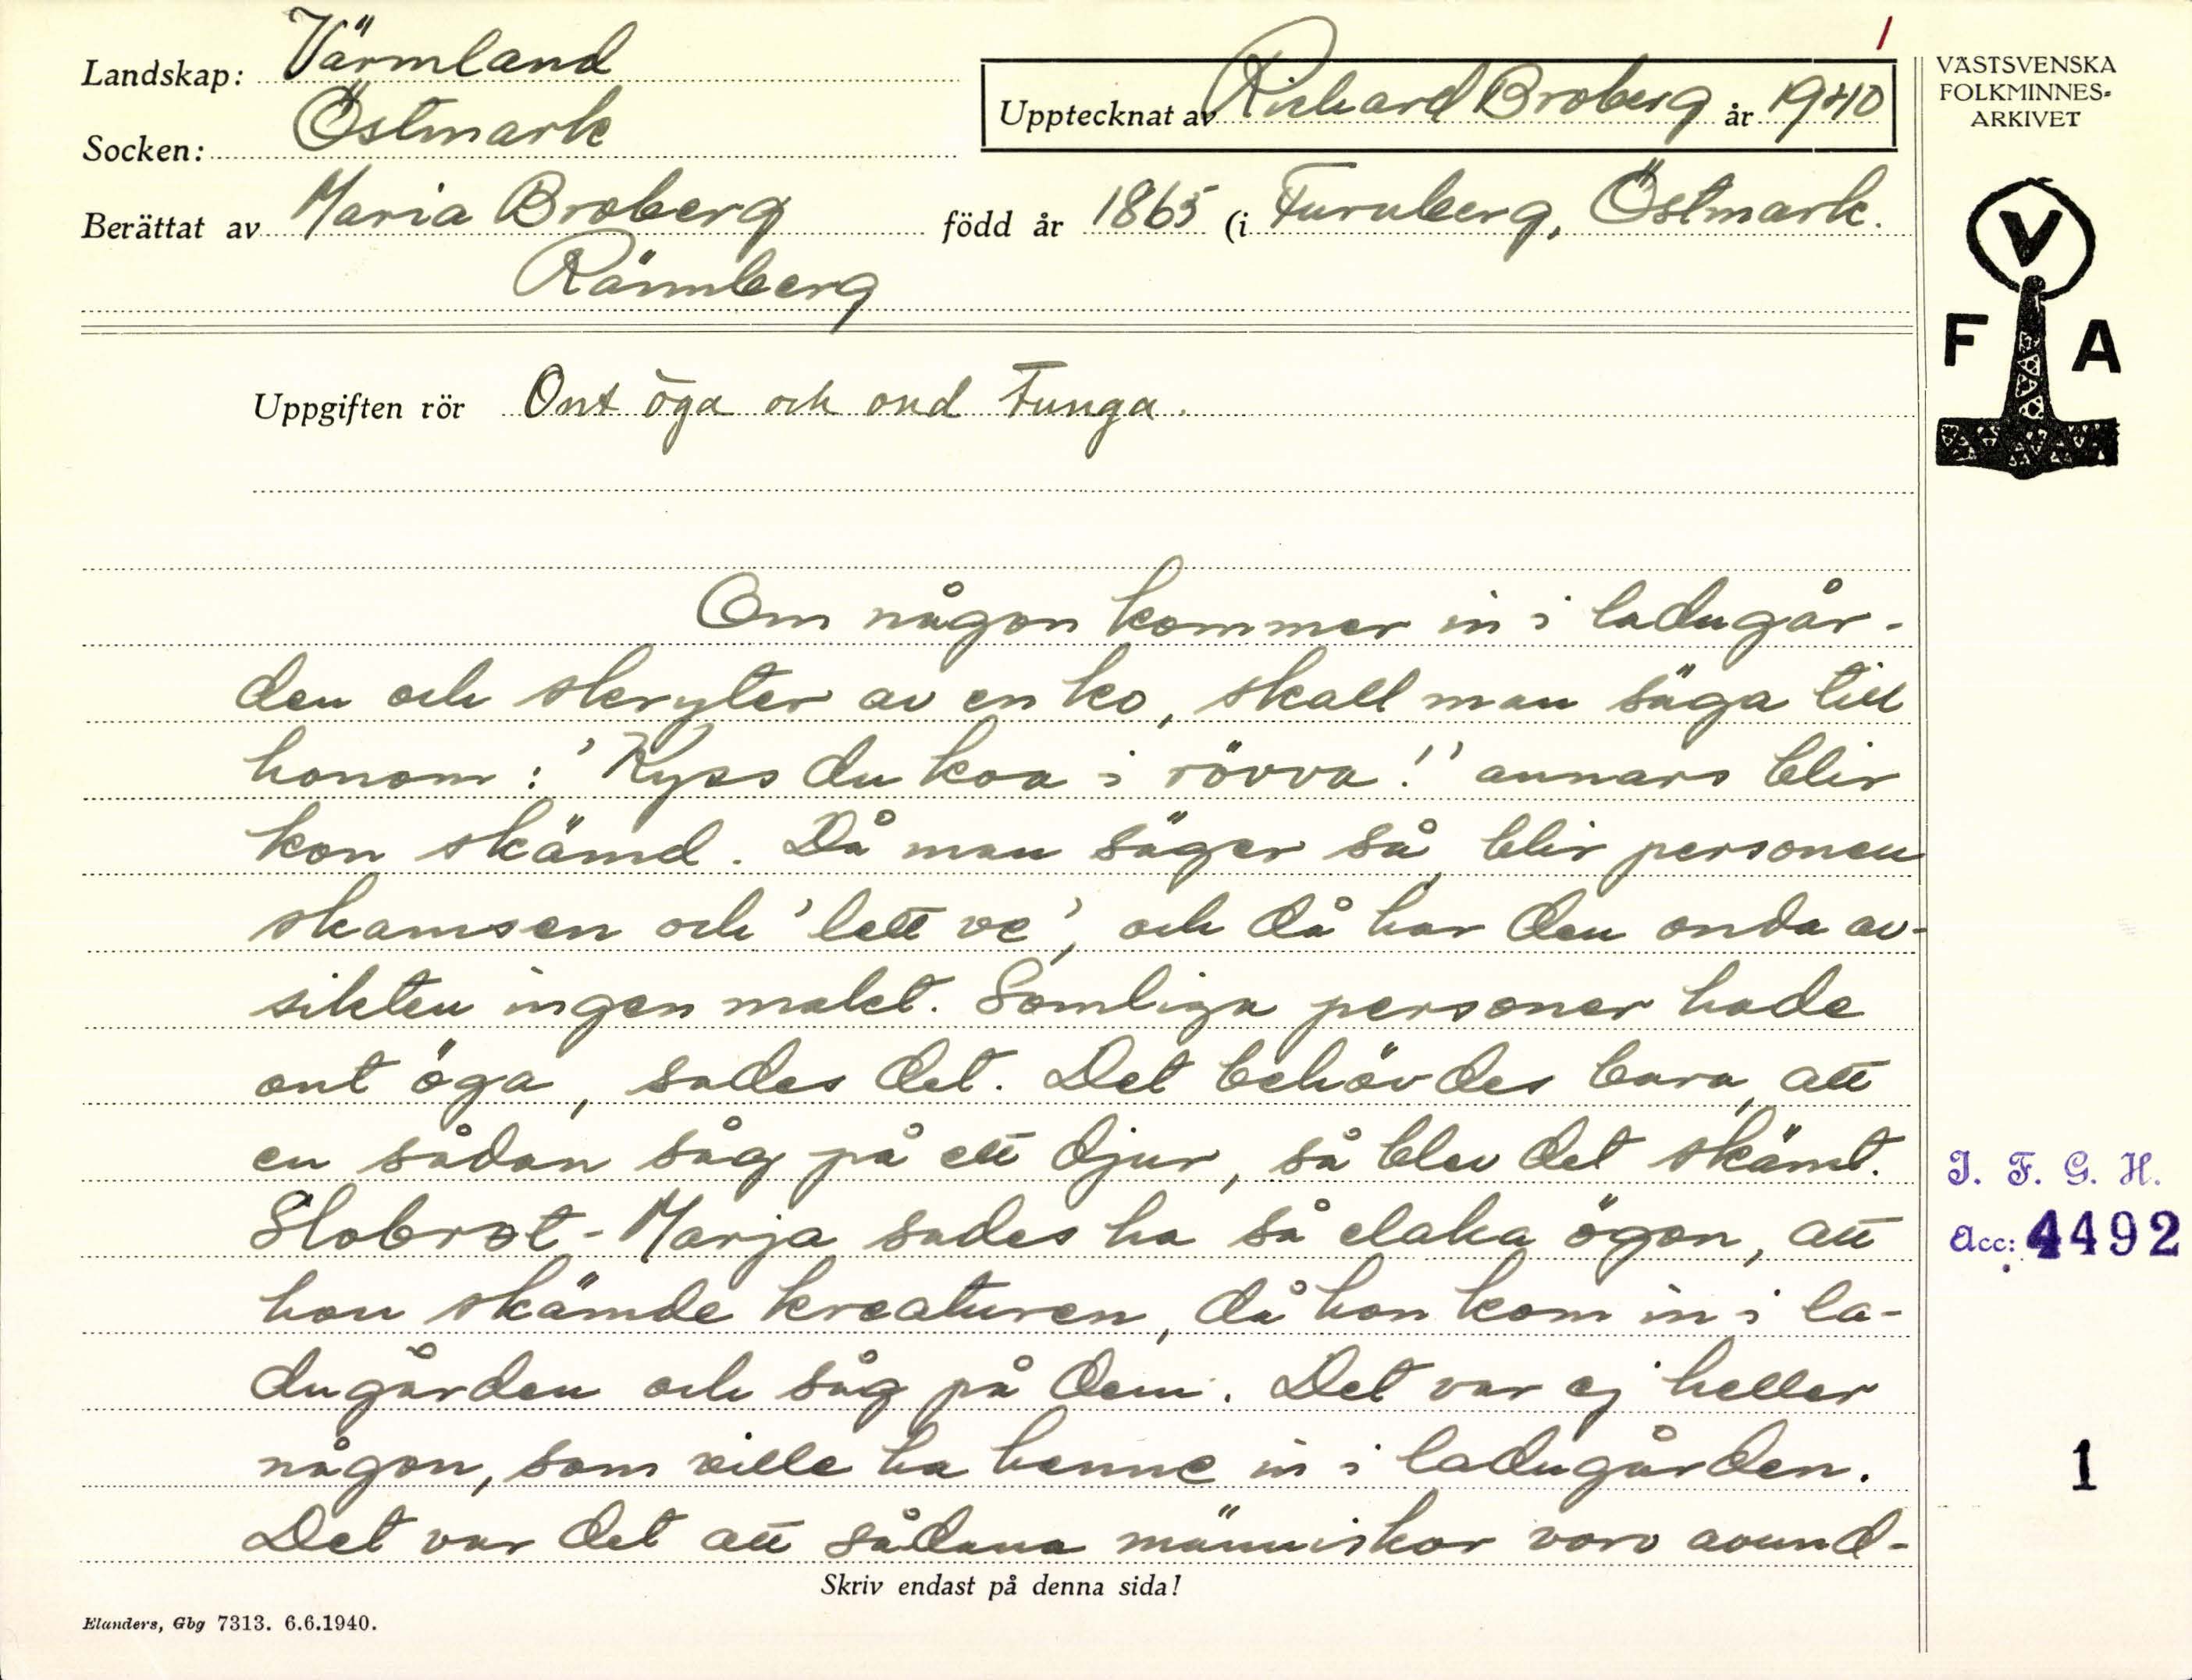 1
Landskap: Värmland
Upptecknat av Richard Broberg år 1940
Socken: Östmark
Berättat av Maria Broberg född år 1865 (i Furuberg, Östmark.
Rännberg
Uppgiften rör Ont öga och ond tunga.
Om någon kommer in i ladugår-
den och skryter av en ko, skall man säga till
honom: 'Kyss du koa i rövva!' annars blir
kon skämd. Då man säger så, blir personen
skamsen och 'lett ve', och då har den onda av-
sikten ingen makt. Somliga personer hade
ont öga, sades det. Det behövdes bara, att
en sådan såg på ett djur, så blev det skämt.
Slobrot-Marja sades ha så elaka ögon, att
hon skämde kreaturen, då hon kom in i la-
dugården och såg på dem. Det var ej heller
någon, som ville ha henne in i ladugården.
Det var det att sådana människor voro avund-
Skriv endast på denna sida!
Elanders, Gbg 7313. 6.6.1940.
VÄSTSVENSKA
FOLKMINNES-
ARKIVET
V
F A
I. F. G. H.
Acc: 4492
1